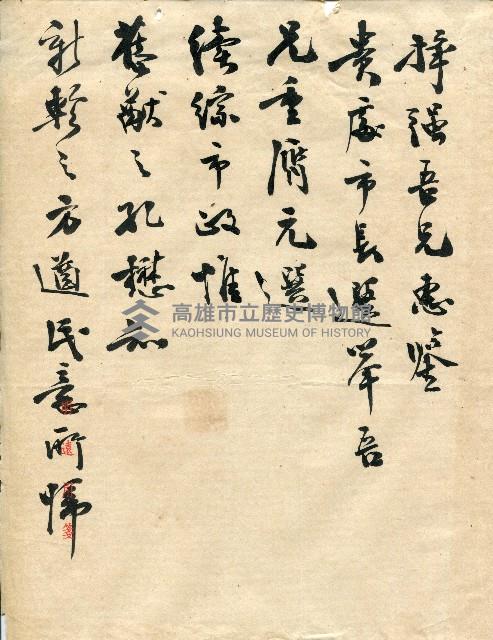 擇強吾兄惠鑒
貴處市長選舉吾
兄重膺元選
續綜市政惟
舊猷之孔懋為
新軫之方遒民意所歸
高雄市立歷史博物館
KAOHSIUNG MUSEUM OF HISTORY